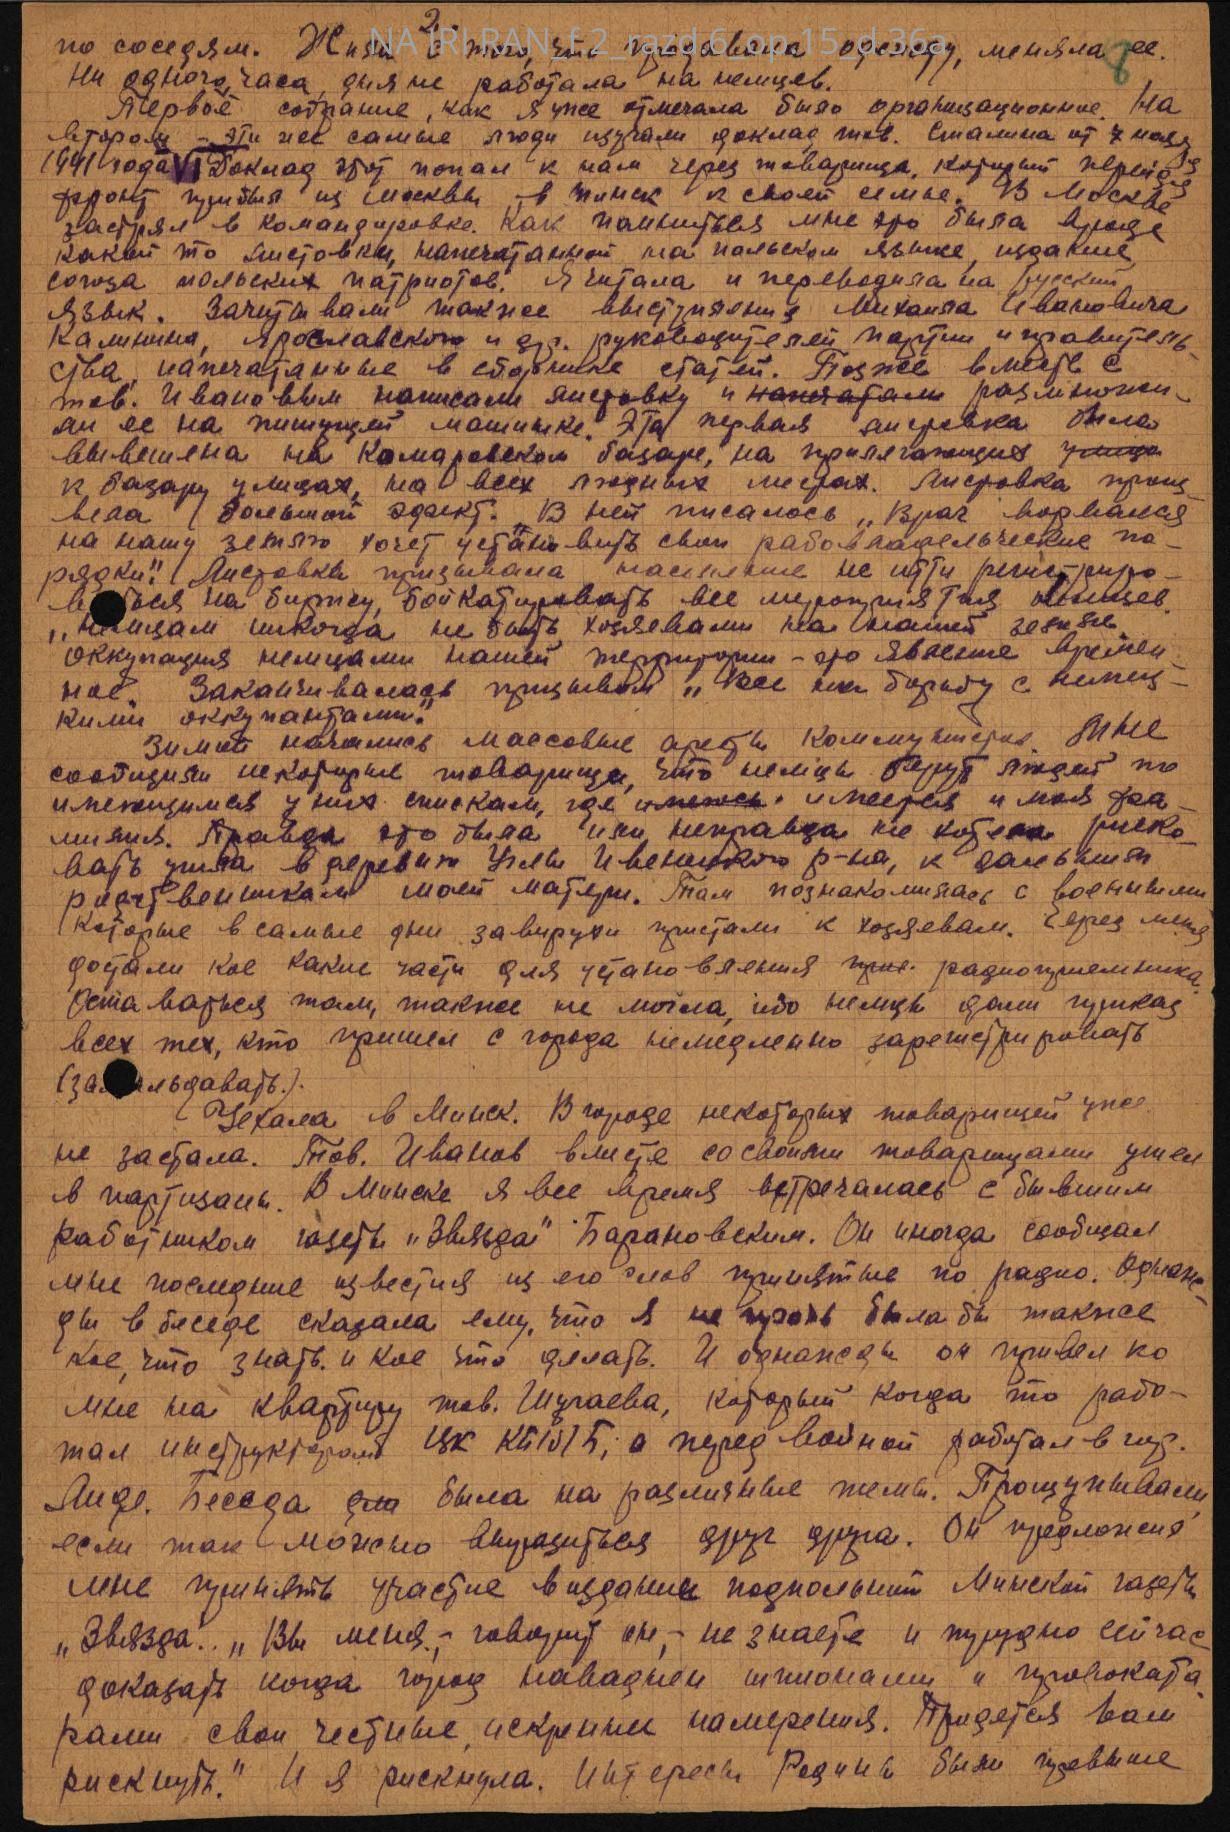 2
NA IRI RAN_f.2_razd.6_op.15_d.36a
8
по соседям. Жила с того, что продавала одежду, меняла ее.
Ни одного, часа, дня не работала на немцев.
Первое собрание, как я уже отмечала было организационное. На
втором – эти же самые люди изучали доклад тов. Сталина от 7 ноября
1941 года. Доклад этот попал к нам через товарища, который перейдя
фронт прибыл из Москвы в Минск к своей семье. В Москве
застрял в командировке. Как помниться мне это была вроде
какой то листовки, напечатанной на польском языке, издание
союза польских патриотов. Я читала и переводила на русский
язык. Зачитывали также выступления Михаила Ивановича
Калинина, Ярославского и др. руководителей партии и правитель-
ства, напечатанные в сборнике статей. Позже вместе с
тов. Ивановым написали листовку и напечатали размножи-
ли ее на пишущей машинке. Эта первая листовка была
вывешена на Комаровском базаре, на прилегающих улица
к базару улицах, на всех людных местах. Листовка произ-
вела большой эфект. В ней писалось „Враг ворвался
на нашу землю хочет установить свои рабовладельческие по-
рядки". Листовка призывала население не итти регистриро-
ваться на биржу, бойкатировать все мероприятия немцев.
„Немцам никогда не быть хозяевами на нашей земле.
Оккупация немцами нашей территории – это явление времен
ное. Заканчивалась призывом „Все на борьбу с немец-
кими оккупантами".
Зимой начались массовые аресты коммунистов. Мне
сообщили некоторые товарищи, что немцы берут людей по
имеющимся у них спискам, где имеюсь имеется и моя фа-
милия. Правда это была или неправда не хотела риско-
вать ушла в деревню Углы Ивенецкого р-на, к дальним
родственникам моей матери. Там познакомилась с военными
которые в самые дни завирухи пристали к хозяевам. Через меня
достали кое какие части для установления радиоприемника.
Оставаться там, также не могла, ибо немцы дали приказ
всех тех, кто пришел с города немедленно зарегистрировать
(за льдавать.).
Уехала в Минск. В городе некоторых товарищей уже
не застала. Тов. Иванов вместе со своими товарищами ушел
в партизаны. В Минске я все время встречалась с бывшим
работником газеты „Звязда" Барановским. Он иногда сообщал
мне последние известия из его слов принятые по радио. Однаж-
ды в беседе сказала ему, что я не прочь была бы также
кое, что знать и кое что делать. И однажды он привел ко
мне на квартиру тов. Шугаева, который когда то рабо-
тал инструктором ЦК КП(б)Б, а перед войной работал в гор.
Лиде. Беседа была на различные темы. Прощупывали
если так можно выразиться друг друга. Он предложил
мне принять участие в издании подпольной Минской газеты
„Звязда". „Вы меня, – говорит он, – не знаете и трудно сейчас
доказать когда город наваднен шпионами и провоката-
рами свои честные, искренние намерения. Придется вам
рискнуть." И я рискнула. Интересы Родины были превыше